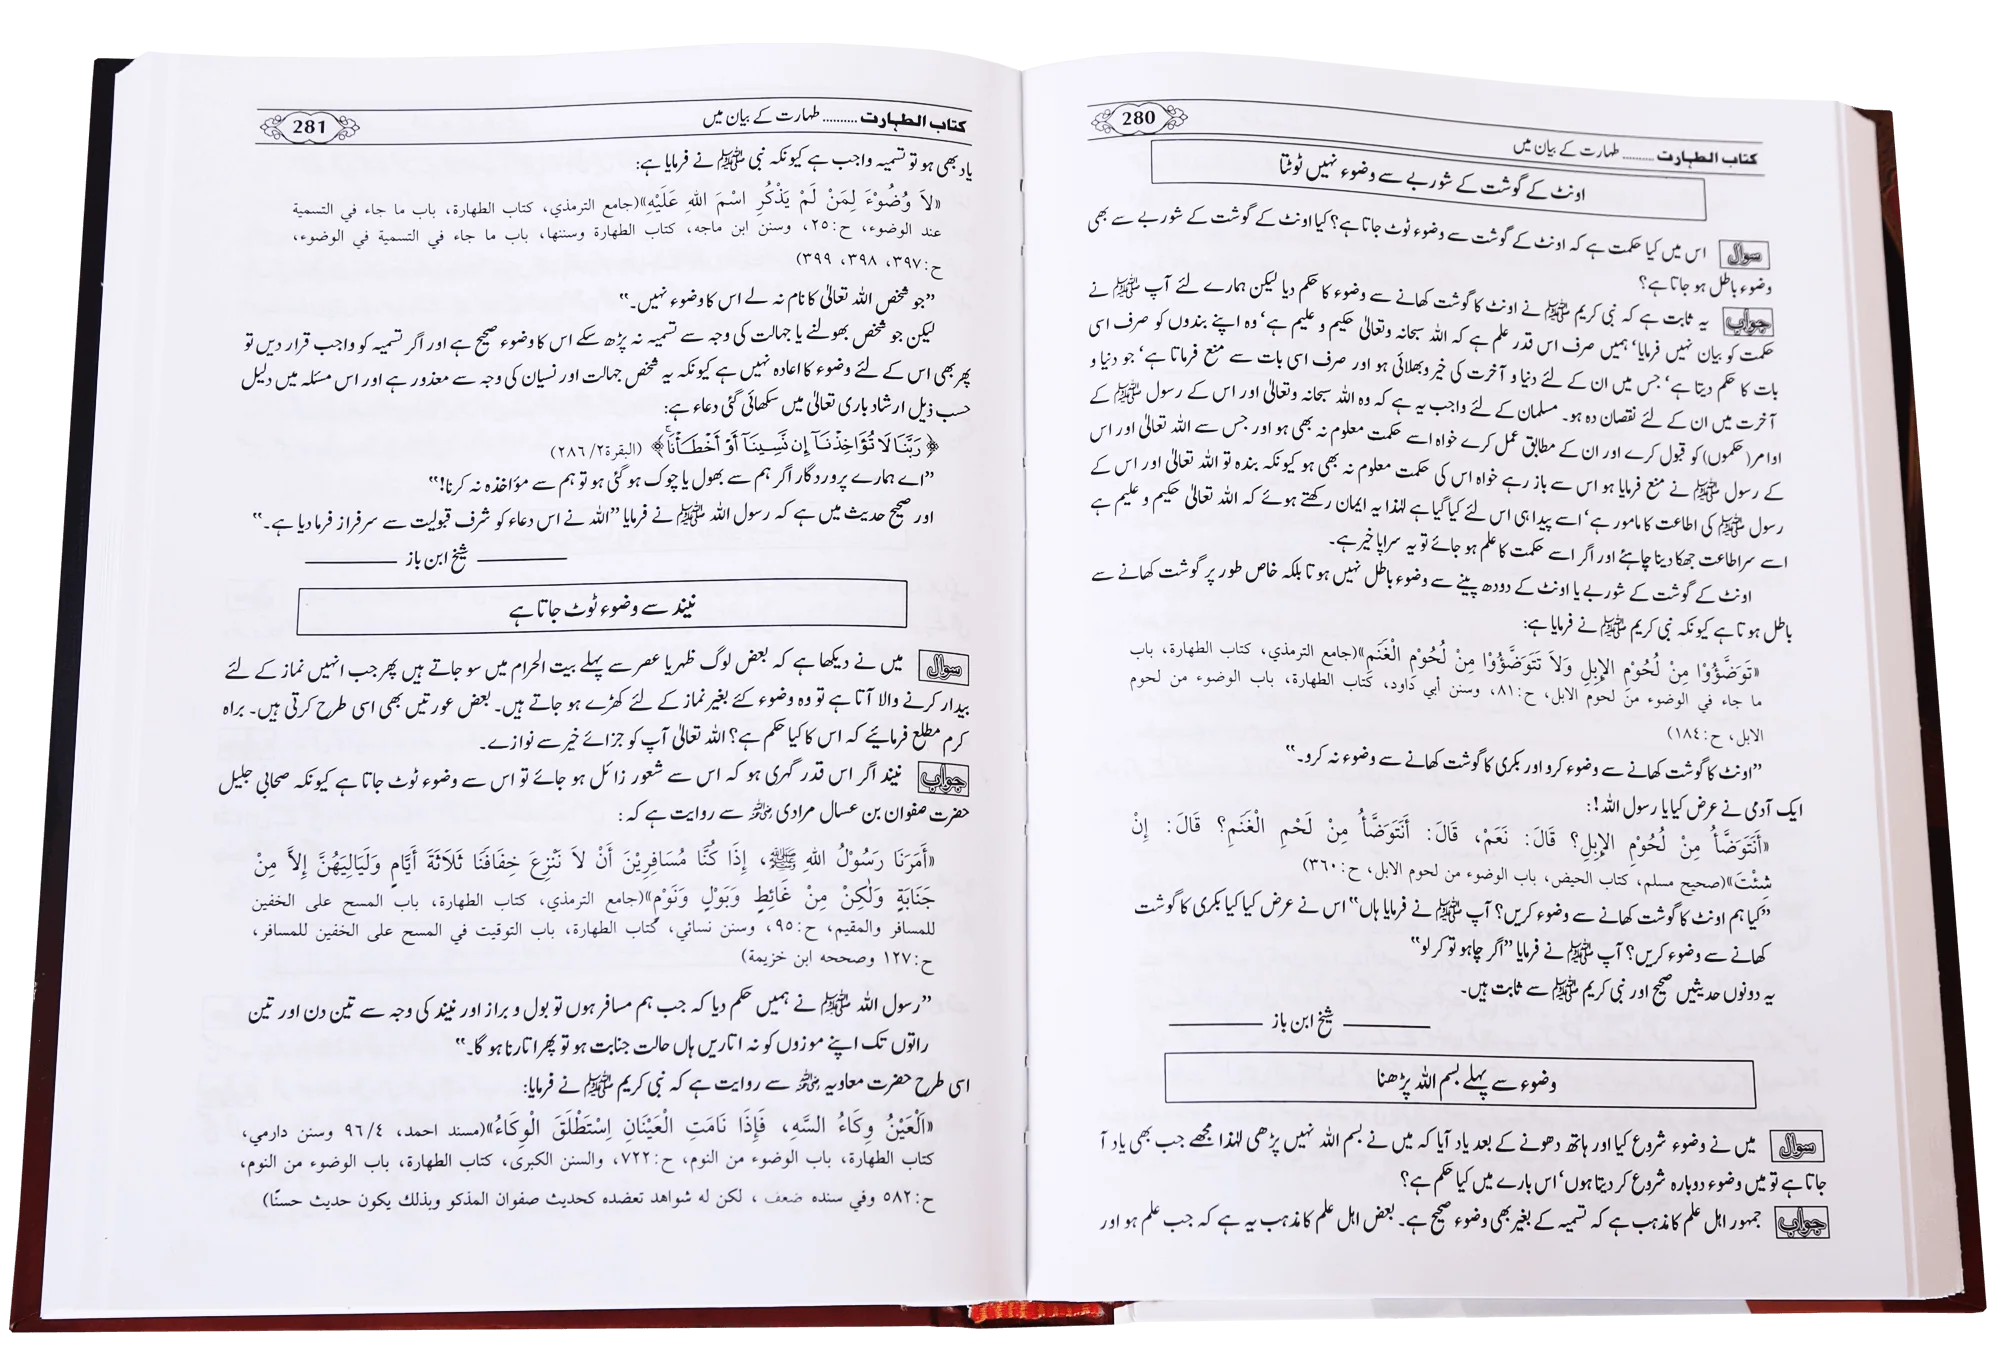 280
کتاب الطہارت .......... طہارت کے بیان میں
اونٹ کے گوشت کے شوربے سے وضوء نہیں ٹوٹتا
سوال اس میں کیا حکمت ہے کہ اونٹ کے گوشت سے وضوء ٹوٹ جاتا ہے؟ کیا اونٹ کے گوشت کے شوربے سے بھی
وضوء باطل ہو جاتا ہے؟
جواب یہ ثابت ہے کہ نبی کریم ﷺ نے اونٹ کا گوشت کھانے سے وضوء کا حکم دیا لیکن ہمارے لئے آپ ﷺ نے
حکمت کو بیان نہیں فرمایا‘ ہمیں صرف اس قدر علم ہے کہ اللہ سبحانہ وتعالیٰ حکیم و علیم ہے‘ وہ اپنے بندوں کو صرف اسی
بات کا حکم دیتا ہے‘ جس میں ان کے لئے دنیا و آخرت کی خیر وبھلائی ہو اور صرف اسی بات سے منع فرماتا ہے‘ جو دنیا و
آخرت میں ان کے لئے نقصان دہ ہو۔ مسلمان کے لئے واجب یہ ہے کہ وہ اللہ سبحانہ وتعالیٰ اور اس کے رسول ﷺ کے
اوامر(حکموں) کو قبول کرے اور ان کے مطابق عمل کرے خواہ اسے حکمت معلوم نہ بھی ہو اور جس سے اللہ تعالیٰ اور اس
کے رسول ﷺ نے منع فرمایا ہو اس سے باز رہے خواہ اس کی حکمت معلوم نہ بھی ہو کیونکہ بندہ تو اللہ تعالیٰ اور اس کے
رسول ﷺ کی اطاعت کا مامور ہے‘ اسے پیدا ہی اس لئے کیا گیا ہے لہٰذا یہ ایمان رکھتے ہوئے کہ اللہ تعالیٰ حکیم و علیم ہے
اسے سراطاعت جھکا دینا چاہئے اور اگر اسے حکمت کا علم ہو جائے تو یہ سراپا خیر ہے۔
اونٹ کے گوشت کے شوربے یا اونٹ کے دودھ پینے سے وضوء باطل نہیں ہوتا بلکہ خاص طور پر گوشت کھانے سے
باطل ہوتا ہے کیونکہ نبی کریم ﷺ نے فرمایا ہے:
«تَوَضَّؤُوْا مِنْ لُحُوْمِ الإِبِلِ وَلاَ تَتَوَضَّؤُوْا مِنْ لُحُوْمِ الْغَنَمِ»(جامع الترمذي، كتاب الطهارة، باب
ما جاء في الوضوء من لحوم الابل، ح:٨١، وسنن أبي داود، كتاب الطهارة، باب الوضوء من لحوم
الابل، ح:١٨٤)
”اونٹ کا گوشت کھانے سے وضوء کرو اور بکری کا گوشت کھانے سے وضوء نہ کرو۔“
ایک آدمی نے عرض کیا یا رسول اللہ !:
«أَنَتَوَضَّأُ مِنْ لُحُوْمِ الإِبِلِ؟ قَالَ: نَعَمْ، قَالَ: أَنَتَوَضَّأُ مِنْ لَحْمِ الْغَنَمِ؟ قَالَ: إِنْ
شِئْتَ»(صحيح مسلم، كتاب الحيض، باب الوضوء من لحوم الابل، ح:٣٦٠)
”کیا ہم اونٹ کا گوشت کھانے سے وضوء کریں؟ آپ ﷺ نے فرمایا ہاں“ اس نے عرض کیا کیا بکری کا گوشت
کھانے سے وضوء کریں؟ آپ ﷺ نے فرمایا ”اگر چاہو تو کر لو“
یہ دونوں حدیثیں صحیح اور نبی کریم ﷺ سے ثابت ہیں۔
شیخ ابن باز
وضوء سے پہلے بسم اللہ پڑھنا
سوال میں نے وضوء شروع کیا اور ہاتھ دھونے کے بعد یاد آیا کہ میں نے بسم اللہ نہیں پڑھی لہٰذا مجھے جب بھی یاد آ
جاتا ہے تو میں وضوء دوبارہ شروع کر دیتا ہوں‘ اس بارے میں کیا حکم ہے؟
جواب جمہور اہل علم کا مذہب ہے کہ تسمیہ کے بغیر بھی وضوء صحیح ہے۔ بعض اہل علم کا مذہب یہ ہے کہ جب علم ہو اور
281
کتاب الطہارت .......... طہارت کے بیان میں
یاد بھی ہو تو تسمیہ واجب ہے کیونکہ نبی ﷺ نے فرمایا ہے:
«لاَ وُضُوْءَ لِمَنْ لَمْ يَذْكُرِ اسْمَ اللهِ عَلَيْهِ»(جامع الترمذي، كتاب الطهارة، باب ما جاء في التسمية
عند الوضوء، ح:٢٥، وسنن ابن ماجه، كتاب الطهارة وسننها، باب ما جاء في التسمية في الوضوء،
ح:٣٩٧، ٣٩٨، ٣٩٩)
”جو شخص اللہ تعالیٰ کا نام نہ لے اس کا وضوء نہیں۔“
لیکن جو شخص بھولنے یا جہالت کی وجہ سے تسمیہ نہ پڑھ سکے اس کا وضوء صحیح ہے اور اگر تسمیہ کو واجب قرار دیں تو
پھر بھی اس کے لئے وضوء کا اعادہ نہیں ہے کیونکہ یہ شخص جہالت اور نسیان کی وجہ سے معذور ہے اور اس مسئلہ میں دلیل
حسب ذیل ارشاد باری تعالیٰ میں سکھائی گئی دعاء ہے:
﴿رَبَّنَا لَا تُؤَاخِذْنَآ إِن نَّسِينَآ أَوْ أَخْطَأْنَا﴾ (البقرة٢/٢٨٦)
”اے ہمارے پروردگار اگر ہم سے بھول یا چوک ہو گئی ہو تو ہم سے مؤاخذہ نہ کرنا!“
اور صحیح حدیث میں ہے کہ رسول اللہ ﷺ نے فرمایا ”اللہ نے اس دعاء کو شرف قبولیت سے سرفراز فرما دیا ہے۔“
شیخ ابن باز
نیند سے وضوء ٹوٹ جاتا ہے
سوال میں نے دیکھا ہے کہ بعض لوگ ظہر یا عصر سے پہلے بیت الحرام میں سو جاتے ہیں پھر جب انہیں نماز کے لئے
بیدار کرنے والا آتا ہے تو وہ وضوء کئے بغیر نماز کے لئے کھڑے ہو جاتے ہیں۔ بعض عورتیں بھی اسی طرح کرتی ہیں۔ براہ
کرم مطلع فرمائیے کہ اس کا کیا حکم ہے؟ اللہ تعالیٰ آپ کو جزائے خیر سے نوازے۔
جواب نیند اگر اس قدر گہری ہو کہ اس سے شعور زائل ہو جائے تو اس سے وضوء ٹوٹ جاتا ہے کیونکہ صحابی جلیل
حضرت صفوان بن عسال مرادی ؓ سے روایت ہے کہ:
«أَمَرَنَا رَسُوْلُ اللهِ ﷺ، إِذَا كُنَّا مُسَافِرِيْنَ أَنْ لاَ نَنْزِعَ خِفَافَنَا ثَلاَثَةَ أَيَّامٍ وَلَيَالِيَهُنَّ إِلاَّ مِنْ
جَنَابَةٍ وَلٰكِنْ مِنْ غَائِطٍ وَبَوْلٍ وَنَوْمٍ»(جامع الترمذي، كتاب الطهارة، باب المسح على الخفين
للمسافر والمقيم، ح:٩٥، وسنن نسائي، كتاب الطهارة، باب التوقيت في المسح على الخفين للمسافر،
ح:١٢٧ وصححه ابن خزيمة)
”رسول اللہ ﷺ نے ہمیں حکم دیا کہ جب ہم مسافر ہوں تو بول و براز اور نیند کی وجہ سے تین دن اور تین
راتوں تک اپنے موزوں کو نہ اتاریں ہاں حالت جنابت ہو تو پھر اتارنا ہو گا۔“
اسی طرح حضرت معاویہ ؓ سے روایت ہے کہ نبی کریم ﷺ نے فرمایا:
«اَلْعَيْنُ وِكَاءُ السَّهِ، فَإِذَا نَامَتِ الْعَيْنَانِ اِسْتَطْلَقَ الْوِكَاءُ»(مسند احمد، ٩٦/٤ وسنن دارمي،
كتاب الطهارة، باب الوضوء من النوم، ح:٧٢٢، والسنن الكبرى، كتاب الطهارة، باب الوضوء من النوم،
ح:٥٨٢ وفي سنده ضعف ، لكن له شواهد تعضده كحديث صفوان المذكو وبذلك يكون حديث حسنًا)